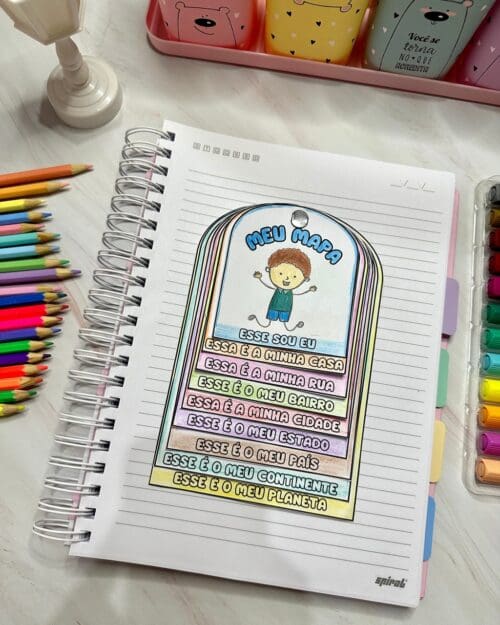 Você se
torna
NO QUE
ACREDITA
MEU MAPA
ESSE SOU EU
ESSA É A MINHA CASA
ESSA É A MINHA RUA
ESSE É O MEU BAIRRO
ESSA É A MINHA CIDADE
ESSE É O MEU ESTADO
ESSE É O MEU PAÍS
ESSE É O MEU CONTINENTE
ESSE É O MEU PLANETA
spiral